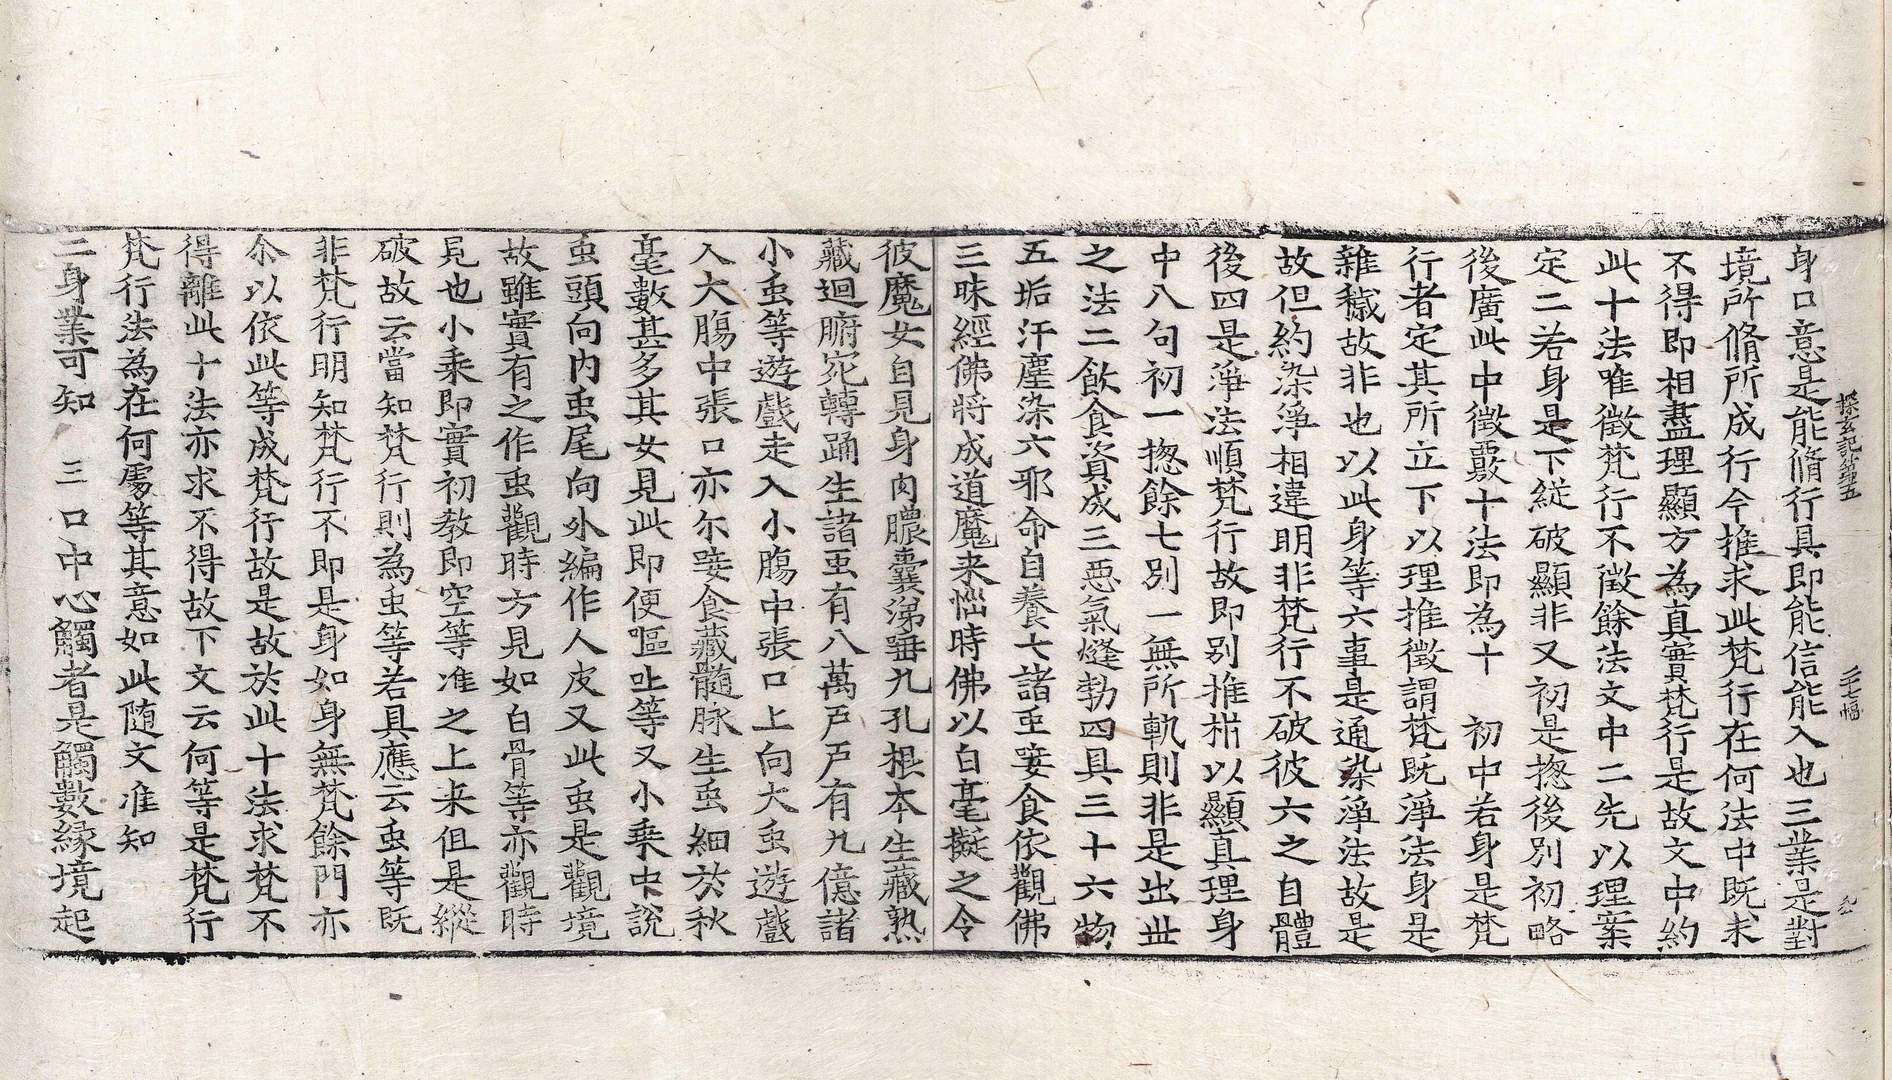 探玄記第五　二十七幅
身口意是能脩行具即能信能入也三業是對
境所脩所成行今推求此梵行在何法中既求
不得即相盡理顯方為真實梵行是故文中約
此十法唯徵梵行不徵餘法文中二先以理案
定二若身是下縱破顯非又初是揔後別初略
後廣此中徵覈十法即為十　初中若身是梵
行者定其所立下以理推徵謂梵既淨法身是
雜穢故非也以此身等六事是通染淨法故是
故但約染淨相違明非梵行不破彼六之自體
後四是淨法順梵行故即別推柝以顯真理身
中八句初一揔餘七別一無所軌則非是出世
之法二飲食資成三惡氣熢勃四具三十六物
五垢汗塵染六耶命自養七諸䖝唼食依觀佛
三昧經佛將成道魔来惱時佛以白毫擬之令
彼魔女自見身內膿囊涕唾九孔根本生藏熟
藏迴腑宛轉踊生諸䖝有八萬戶戶有九億諸
小䖝等遊戲走入小膓中張口上向大䖝遊戲
入大膓中張口亦尔唼食藏髓脉生䖝細於秋
毫數甚多其女見此即便嘔吐等又小乘中說
䖝頭向內䖝尾向外編作人皮又此䖝是觀境
故雖實有之作䖝觀時方見如白骨等亦觀時
見也小乘即實初教即空等准之上来但是縱
破故云當知梵行則為䖝等若具應云䖝等既
非梵行明知梵行不即是身如身無梵餘門亦
尒以依此等成梵行故是故於此十法求梵不
得離此十法亦求不得故下文云何等是梵行
梵行法為在何處等其意如此随文准知
二身業可知　三口中心觸者是觸數緣境起